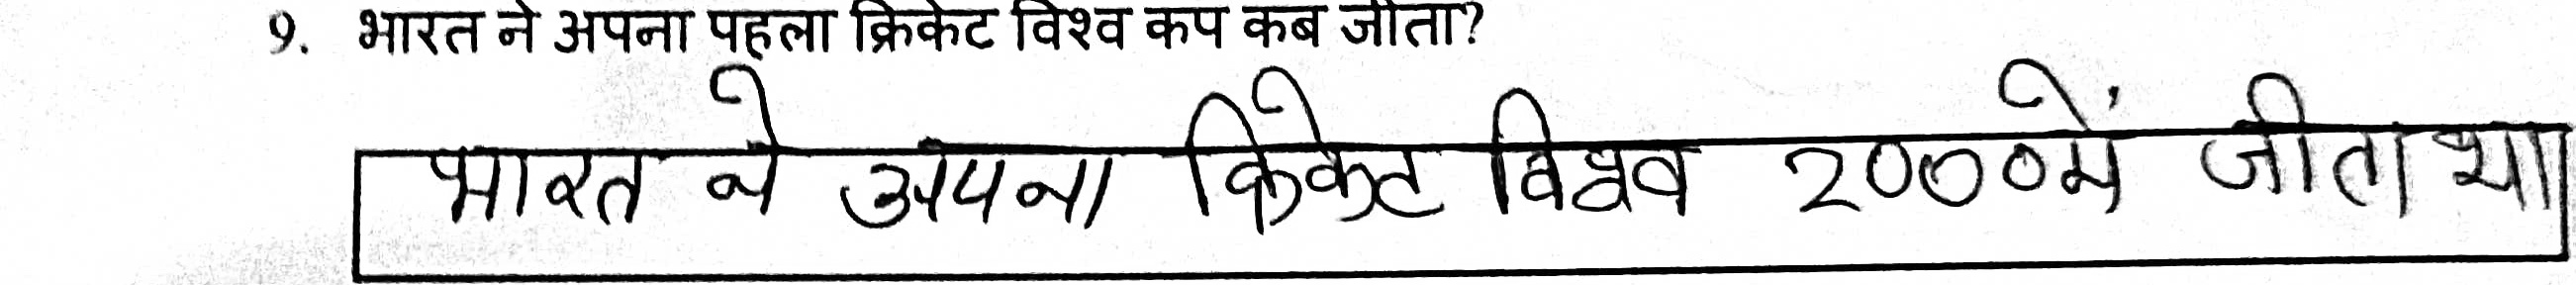 9. भारत ने अपना पहला क्रिकेट विश्व कप कब जीता?
भारत ने अपना क्रिकेट विश्व 2000में जीता था